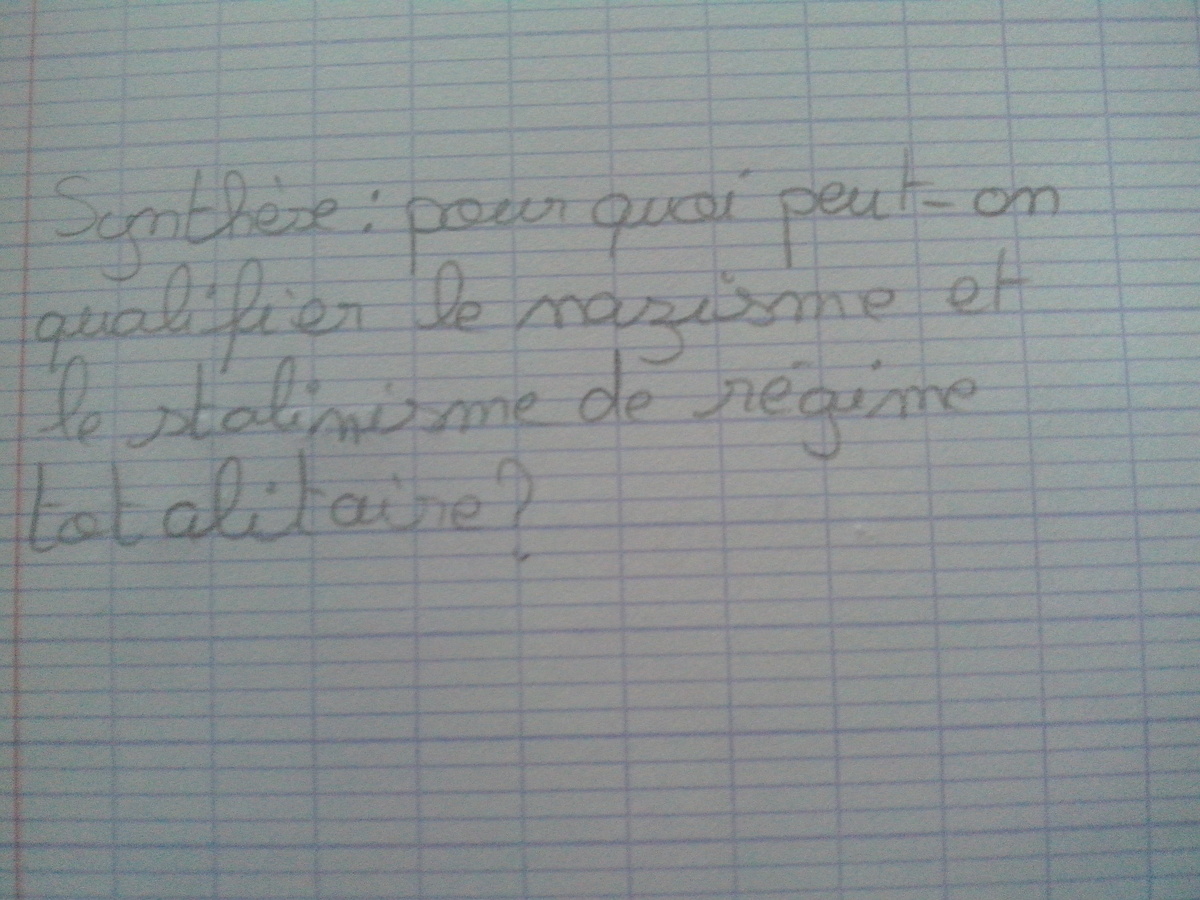 Synthèse : pourquoi peut-on
qualifier le nazisme et
le stalinisme de régime
totalitaire ?